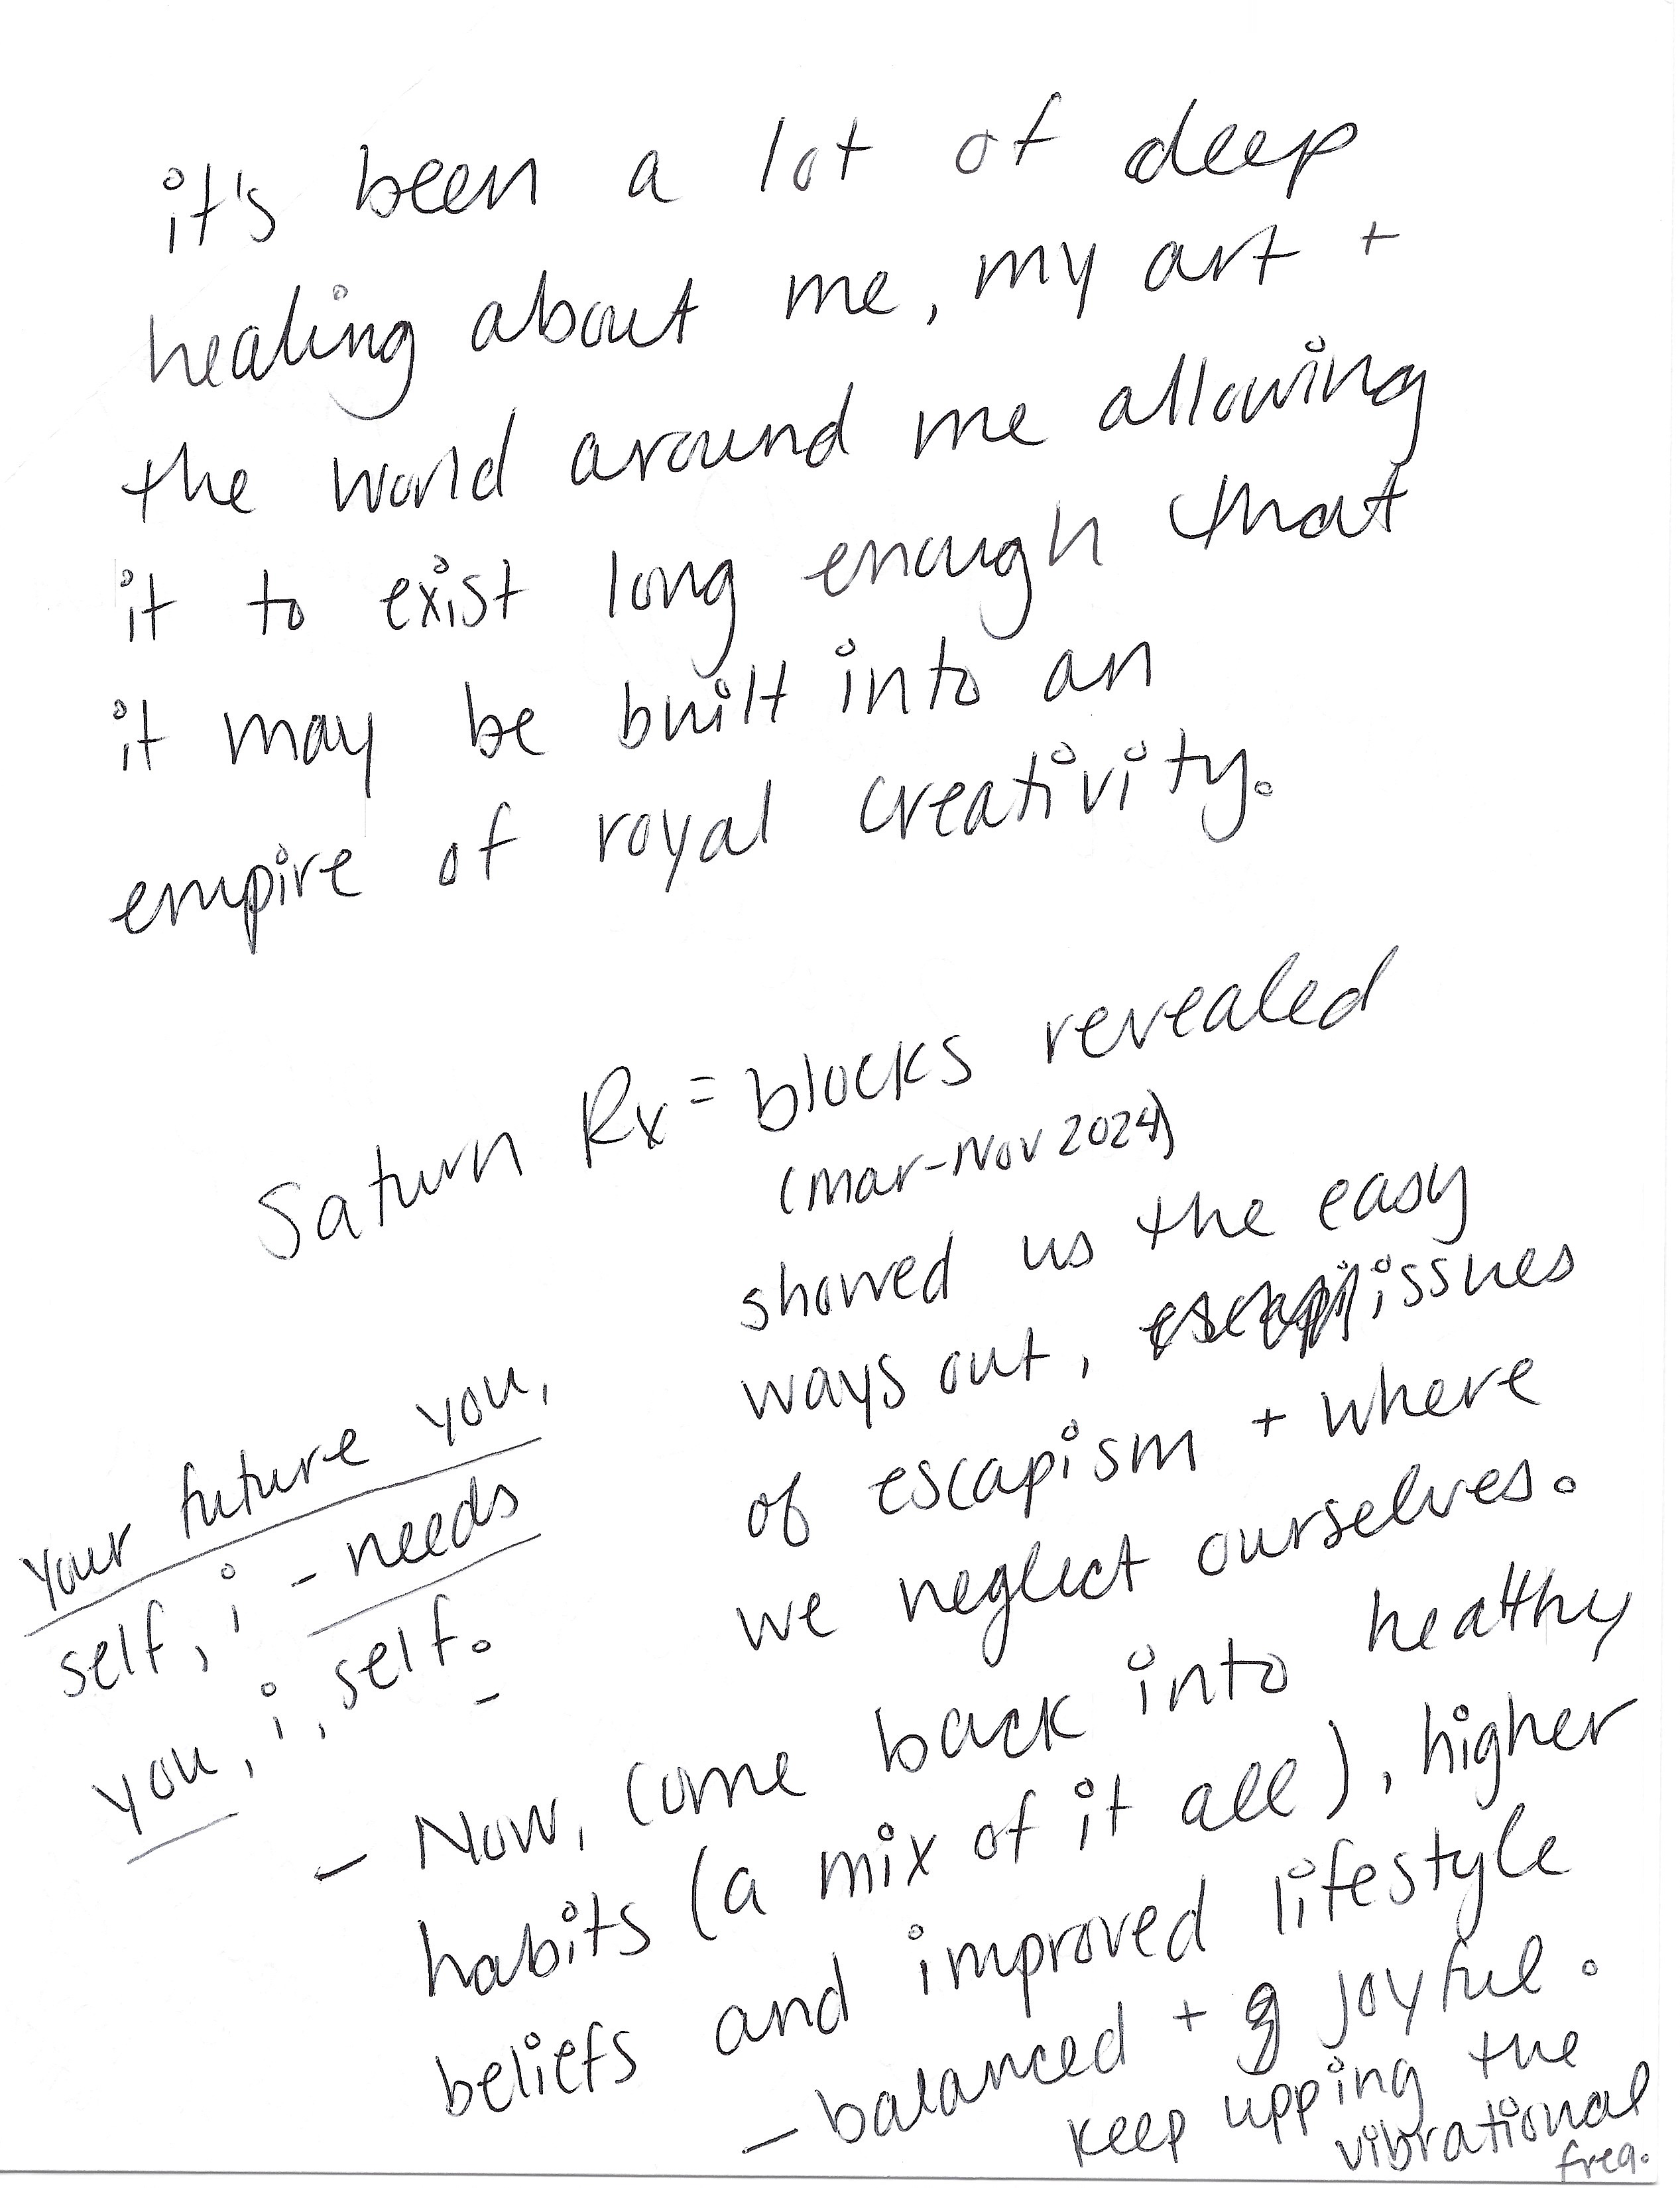 it's been a lot of deep
healing about me, my art +
the world around me allowing
it to exist long enough that
it may be built into an
empire of royal creativity.
Saturn Rx = blocks revealed
(Mar-Nov 2024)
showed us the easy
ways out, issues
of escapism + where
we neglect ourselves.
your future you,
self, i - needs
you, i, self.
- Now, come back into healthy
habits (a mix of it all), higher
beliefs and improved lifestyle
- balanced + joyful.
keep upping the
vibrational
freq.